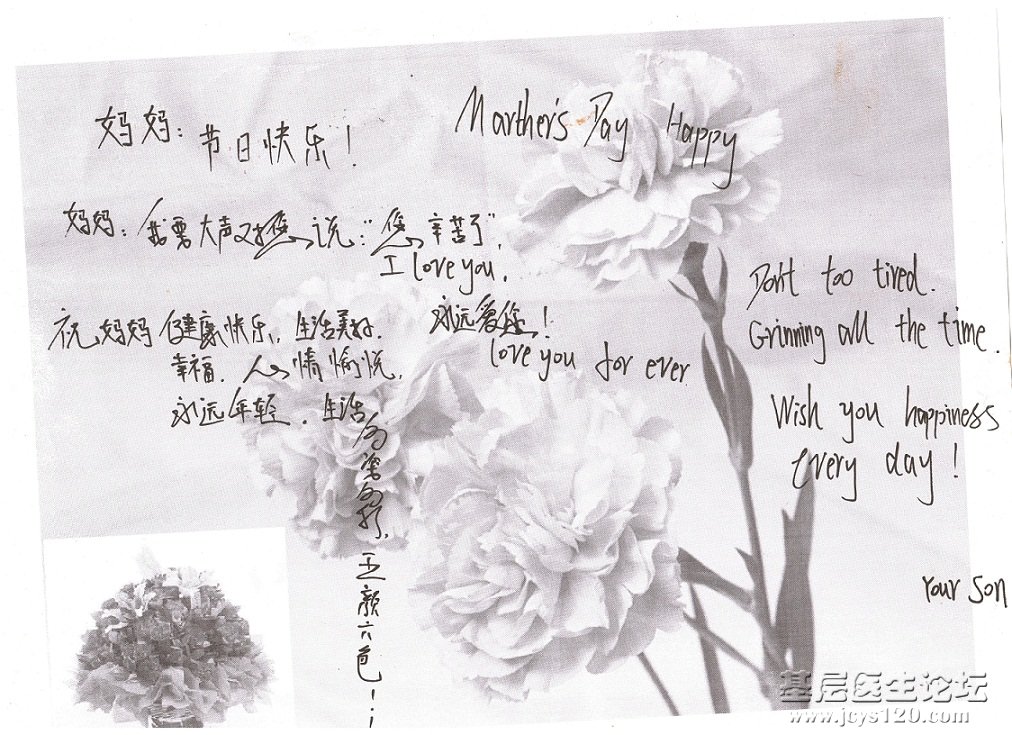 妈妈：节日快乐！
Marther's Day Happy
妈妈：我要大声对您说：“您辛苦了”，
I love you.
祝妈妈健康快乐，生活美好．
幸福．心情愉悦，
永远年轻．生活
永远爱您！
love you for ever
Don't too tired.
Grinning all the time.
Wish you happiness
every day!
五颜六色！
Your Son
基层医生论坛
www.jcys120.com